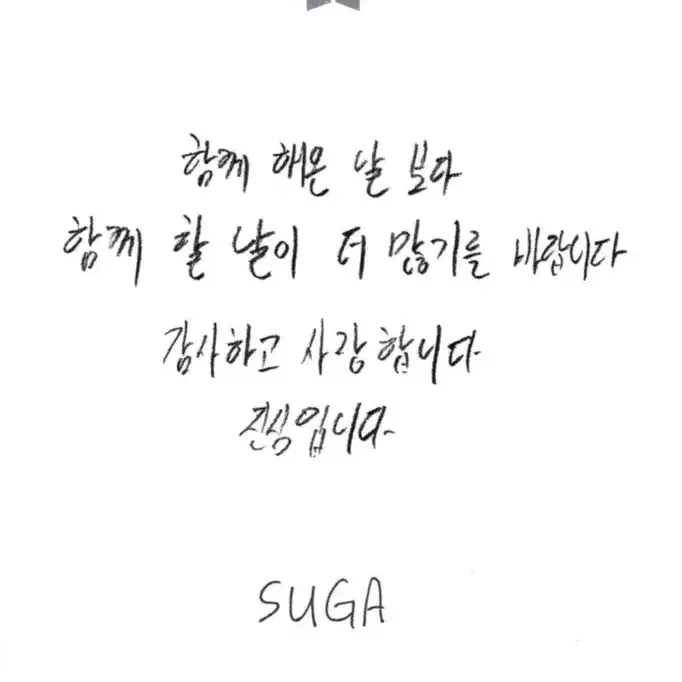 함께 해온 날 보다
함께 할 날이 더 많기를 바랍니다
감사하고 사랑합니다.
진심입니다.
SUGA